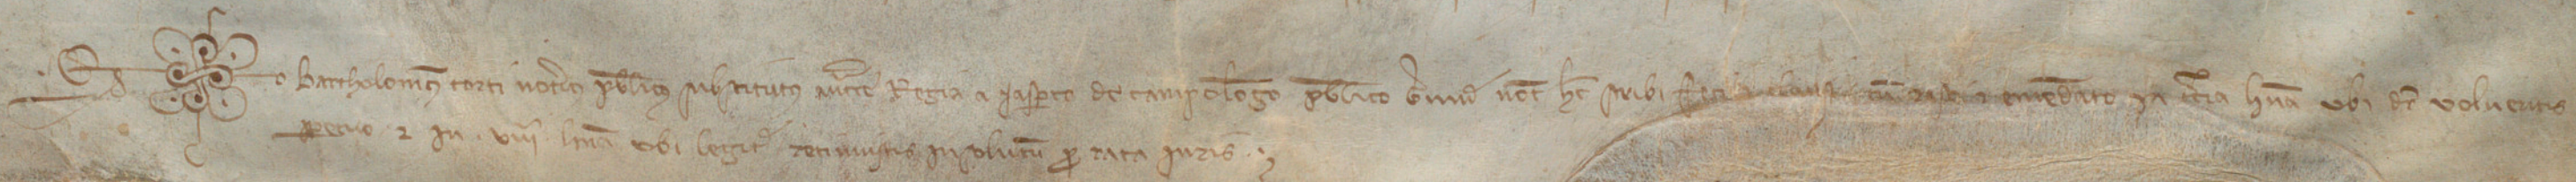 Ego Bartholomeus torti notarius publicus substitutus auctoritate Regia a Jasperto de campolongo publico Gerunde notario hec scribi feci et clausi cum raso et emendato in tercia linea ubi dicitur volueritis
perpetuo et in VIIIª linea ubi legitur retinuistis insolutum pro rata iuris